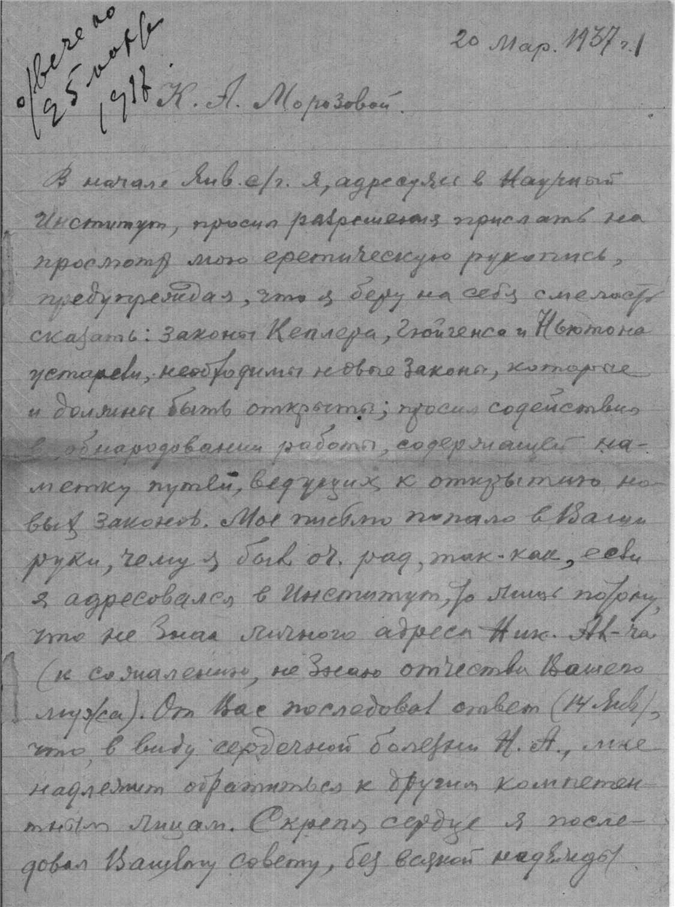 отвечено
25 марта
1937.
20 Мар. 1937 г.
К. А. Морозовой.
В начале Янв. с/г. я, адресуясь в Научный
Институт, просил разрешения прислать на
просмотр мою еретическую рукопись,
предупреждая, что я беру на себя смелость
сказать: законы Кеплера, Гюйгенса и Ньютона
устарели, необходимы новые законы, которые
и должны быть открыты; просил содействия
в обнародовании работы, содержащей на-
метку путей, ведущих к открытию но-
вых законов. Мое письмо попало в Ваши
руки, чему я был оч. рад, так-как, если
я адресовался в Институт, то лишь потому,
что не знал личного адреса Ник. Ал-ча
(к сожалению, не знаю отчества Вашего
мужа). От Вас последовал ответ (14 Янв),
что, в виду сердечной болезни Н. А., мне
надлежит обратиться к другим компетен-
тным лицам. Скрепя сердце я после-
довал Вашему совету, без всякой надежды